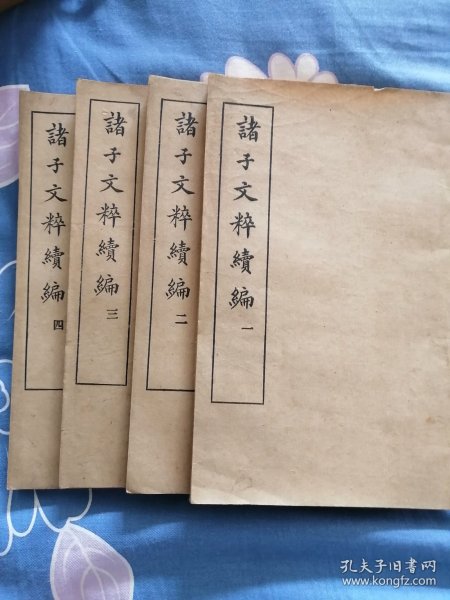 諸子文粹續編 一
諸子文粹續編 二
諸子文粹續編 三
諸子文粹續編 四
孔夫子旧书网
www.kongfz.com